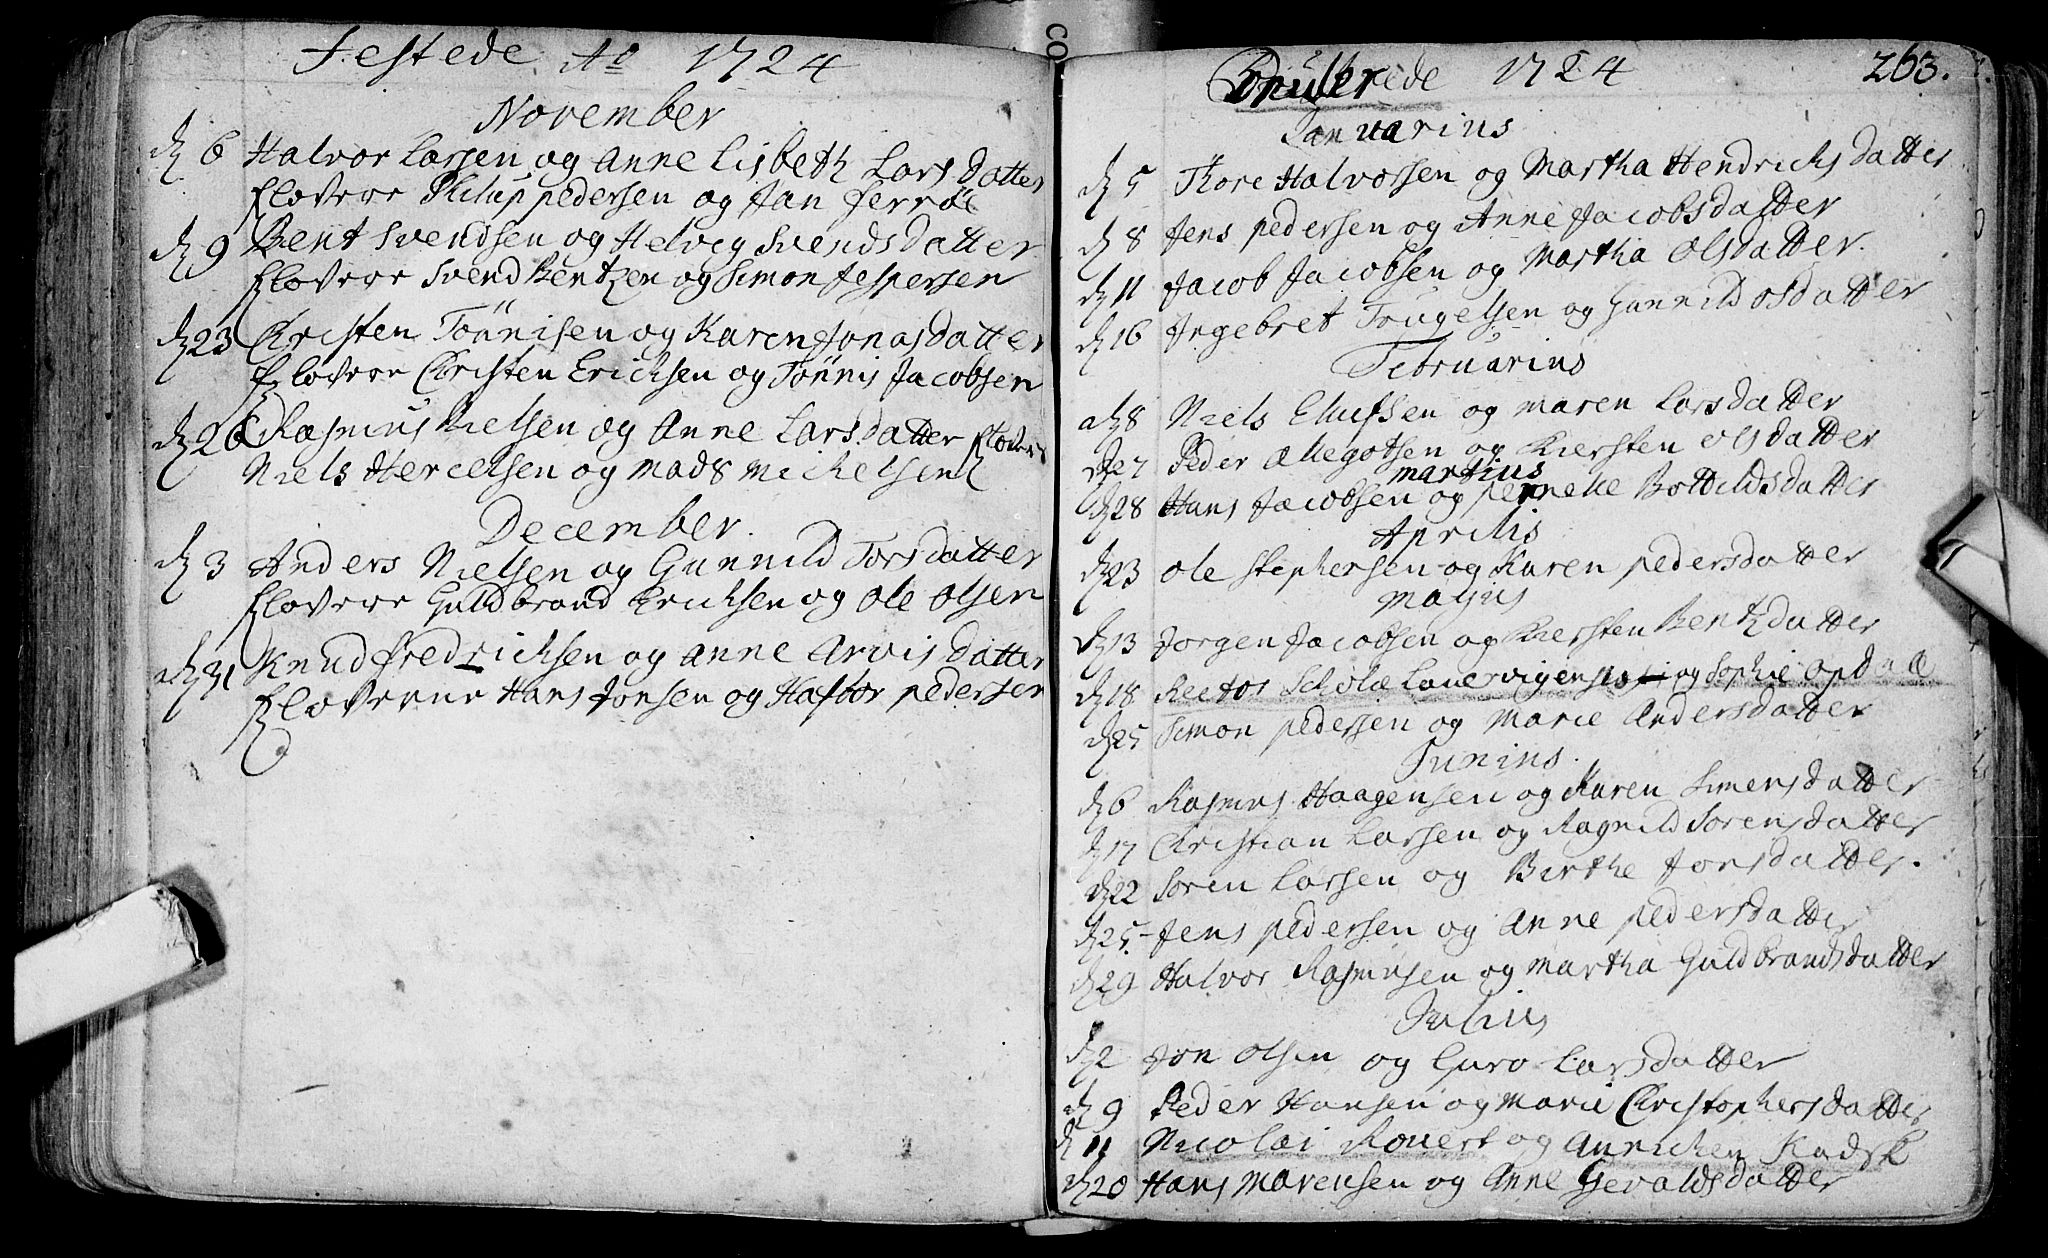 Festede Ao 1724
November
d 6 Halvor Larsen og Anne Lisbeth Lars datter
Philup pedersen og Jan ferröe
d 9 Bent Svendsen og Helvig Svends datter
Svend Bentzen og Simon Jespersen
d 23 Christen Tönnisen og Karen Jonas datter
Christen Ericksen og Tönnis Jacobsen
d 26 Rasmus Nielsen og Anne Lars datter
Niels Hercelsen og Mads Mickelsen
December.
d 3 Anders Nielsen og Gunnild Torsdatter
Guldbrand Ericksen og Ole Olsen
d 31 Knud fredricksen og Anne Arvis datter
Hans Jonsen og Haftor pedersen
Copulerede 1724 263.
Januarius
d 5 Thore Halvorsen og Martha Hendrichs datter
d 8 Jens pedersen og Anne Jacobsdatter
d 11 Jacob Jacobsen og Martha Olsdatter.
d 16 Ingebret Trugelsen og Gunnild Osdatter
Februarius
d 8 Niels Elufsen og Maren Larsdatter
Peder Allegotsen og Kiersten Olsdatter
Martius
d 28 Hans Jacobsen og Penneke Bottildsdatter
Aprilis
d 23 Ole Stephensen og Karen pedersdatter
Majus
d 13 Jorgen Jacobsen og Kiersten Bentzdatter
d 18 Rector Scholæ Laurvigensis og Sophie Opdal
d 25 Simon pedersen og Marie Andersdatter
Junius.
d 6 Rasmus Haagensen og Karen Simensdatter
d 17 Christian Larsen og Ragnild Sorensdatter
d 22 Soren Larsen og Birthe Jonsdatter.
d 25 Jens pedersen og Anne pedersdatter
d 29 Halvor Rasmusen og Martha Guldbrandsdatter
Julius
d 2 Jon Olsen og Guro Larsdatter
d 9 Peder Hansen og Marie Christophersdatter
d 11 Nicolai Rouert og Anneken Kadsk
d 20 Hans Marensen og Anne Gevaldsdatter